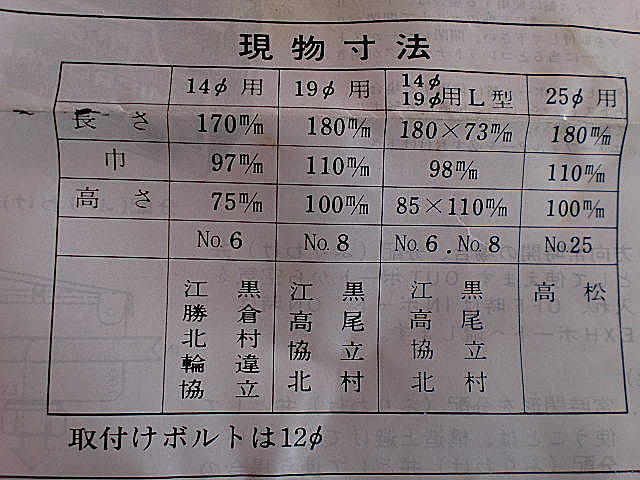 現物寸法
14φ 用 19φ 用 14φ 19φ 用 L 型 25φ 用
長さ 170m/m 180m/m 180×73m/m 180m/m
巾 97m/m 110m/m 98m/m 110m/m
高さ 75m/m 100m/m 85×110m/m 100m/m
No.6 No.8 No.6.No.8 No.25
江 黒 江 黒 江 黒 高 松
勝 倉 高 尾 高 尾
北 村 協 立 協 立
輪 違 北 村 北 村
協 立
取付けボルトは12φ